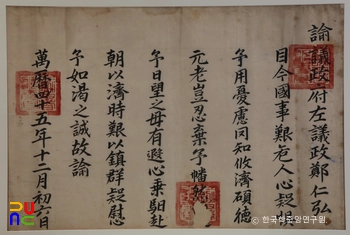 諭議政府左議政鄭仁弘
目今國事艱危人心疑
予用憂慮罔知攸濟碩德
元老豈忍棄予幡然
予日望之毋有遐心乘馹赴
朝以濟時艱以鎮群疑慰
予如渴之誠故諭
萬曆四十五年十二月初六日
© 한국학중앙연구원